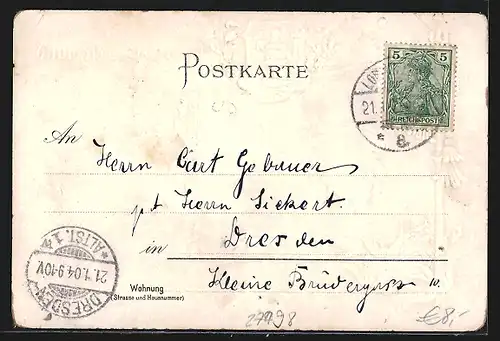 POSTKARTE
5 5
REICHSPOST
21.
8.
An
Herrn Curt Gebauer
pt Herrn Sickert.
in Dresden
Kleine Brüdergasse 10.
Wohnung
(Strasse und Hausnummer)
DRESDEN-ALTST. 1
21.1.04.9-10V.
27498
€8,-